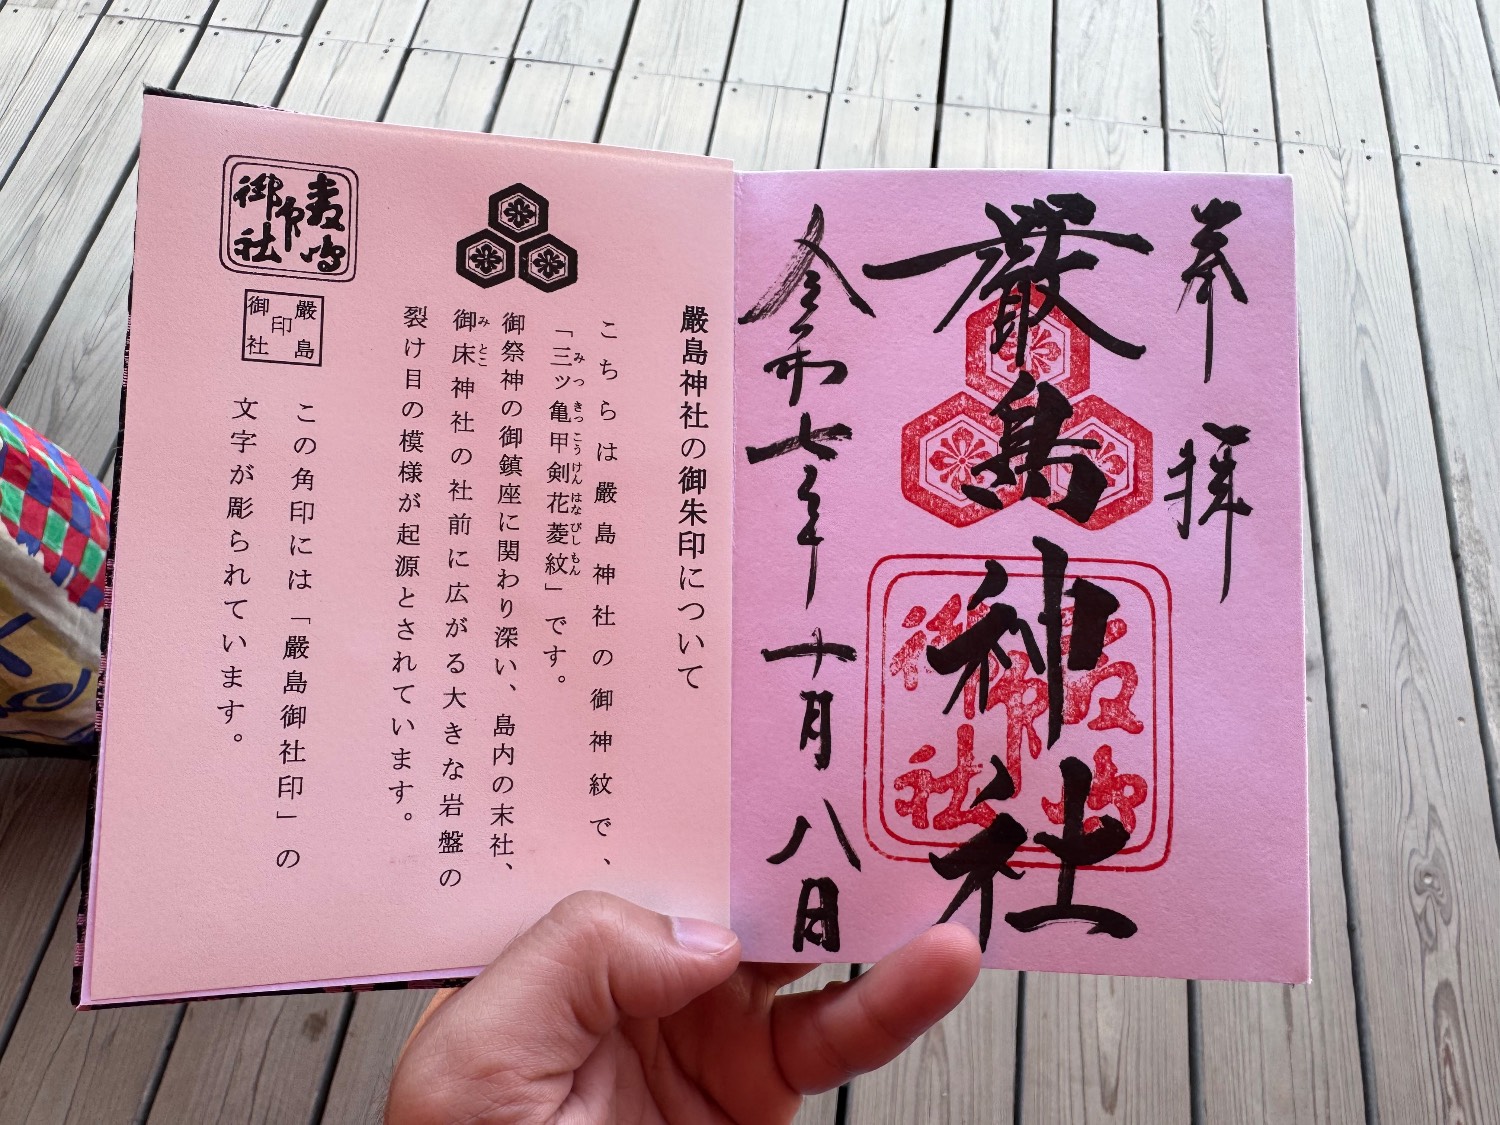 奉拝
嚴島神社
令和七年十月八日
嚴島
印
御社
嚴島神社の御朱印について
こちらは嚴島神社の御神紋で、
「三ッ亀甲剣花菱紋」です。
みっきっこうけんはなびしもん
御祭神の御鎮座に関わり深い、島内の末社、
御床神社の社前に広がる大きな岩盤の
みとこ
裂け目の模様が起源とされています。
嚴島
印
御社
嚴島
印
御社
この角印には「嚴島御社印」の
文字が彫られています。